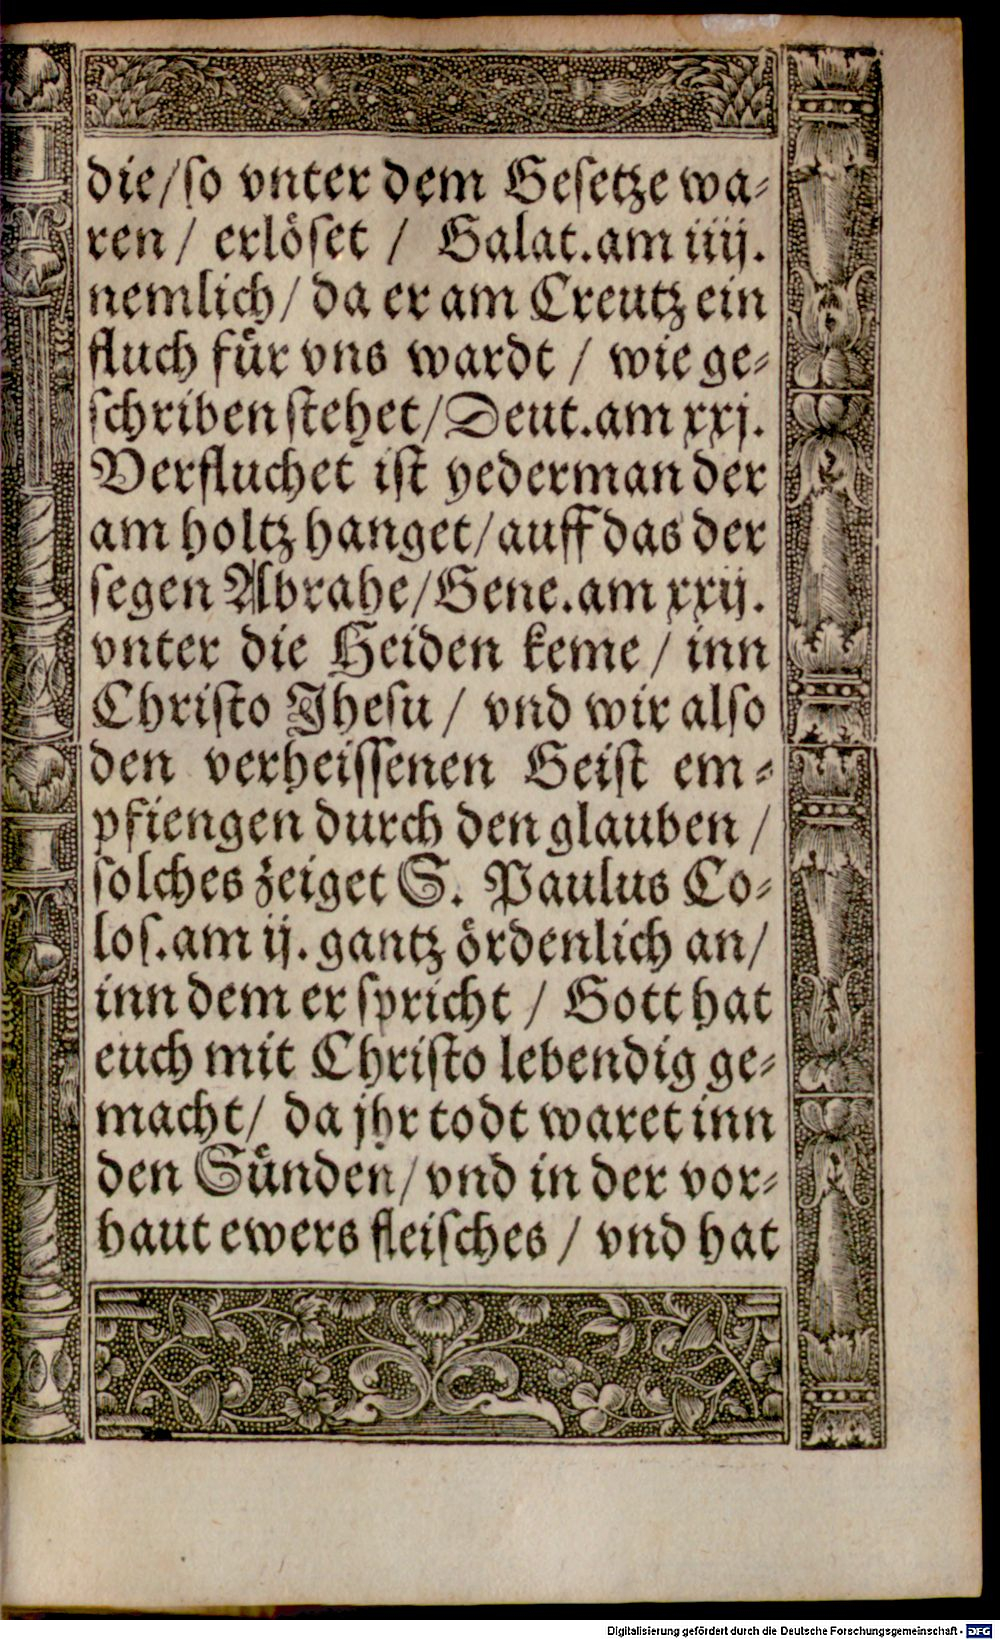 die/so vnter dem Gesetze wa-
ren / erlöset / Galat.am iiij.
nemlich/ da er am Creutz ein
fluch für vns wardt / wie ge-
schriben stehet/Deut.am xxj.
Verfluchet ist yederman der
am holtz hanget/auff das der
segen Abrahe/Gene.am xxij.
vnter die Heiden keme / inn
Christo Jhesu / vnd wir also
den verheissenen Geist em-
pfiengen durch den glauben /
solches zeiget S. Paulus Co-
los.am ij. gantz ördenlich an/
inn dem er spricht / Gott hat
euch mit Christo lebendig ge-
macht/ da jhr todt waret inn
den Sünden/vnd in der vor-
haut ewers fleisches / vnd hat
Digitalisierung gefördert durch die Deutsche Forschungsgemeinschaft - DFG